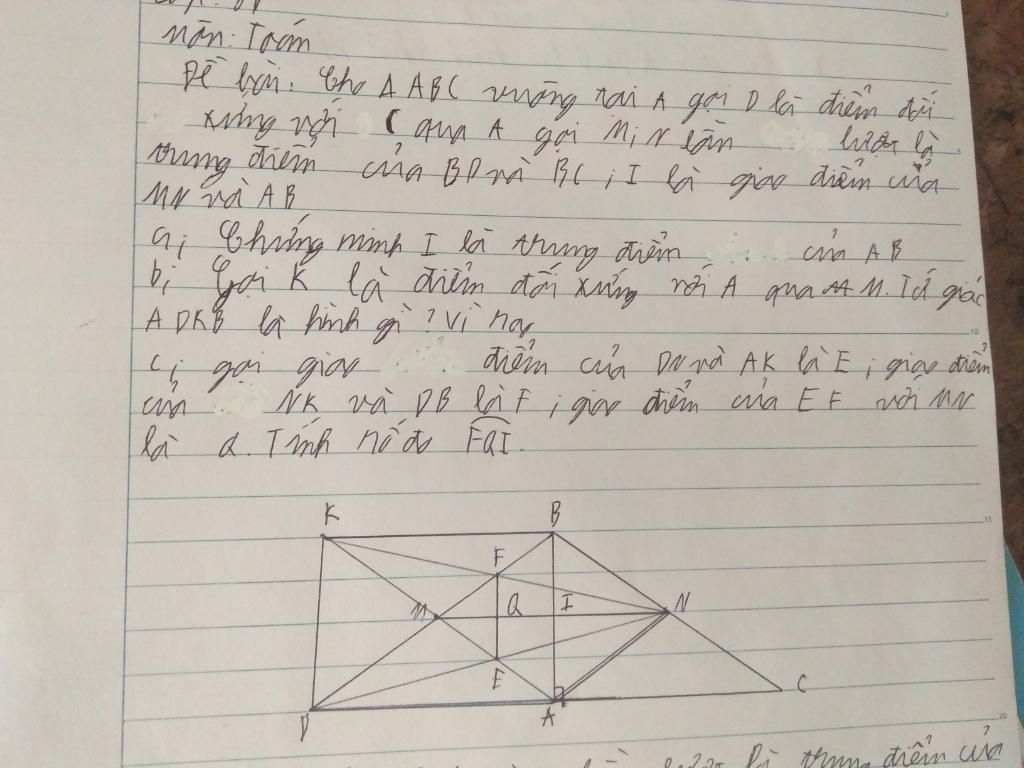 Môn: Toán
Đề bài: Cho Δ ABC vuông tại A gọi D là điểm đối
xứng với C qua A gọi M, N lần lượt là
trung điểm của BD và BC, I là giao điểm của
MN và AB
a, Chứng minh I là trung điểm của AB
b, Gọi K là điểm đối xứng với A qua M. Tứ giác
ADKB là hình gì? Vì sao
c, gọi giao điểm của DN và AK là E, giao điểm
của NK và DB là F, giao điểm của EF với MN
là Q. Tính số đo FQI.
K B
F
M Q I N
E
D A C
là trung điểm của